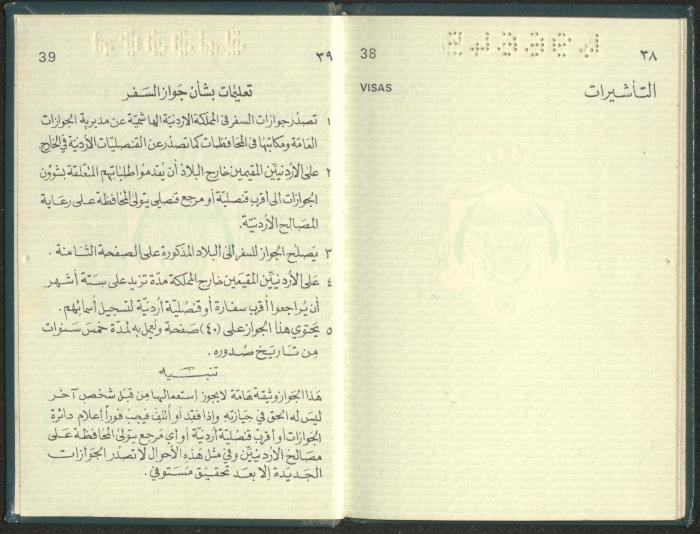 39
٣٩
تعليمات بشأن جواز السفر
١ تصدر جوازات السفر في المملكة الاردنية الهاشمية عن مديرية الجوازات
العامة ومكاتبها في المحافظات كما تصدر عن القنصليات الأردنية في الخارج
٢ على الأردنيين المقيمين خارج البلاد أن يقدموا طلباتهم المتعلقة بشؤون
الجوازات الى أقرب قنصلية أو مرجع قنصلي يتولى المحافظة على رعاية
المصالح الأردنية.
٣ يصلح الجواز للسفر إلى البلاد المذكورة على الصفحة الثامنة .
٤ على الأردنيين المقيمين خارج المملكة مدة تزيد على ستة أشهر
أن يراجعوا أقرب سفارة أو قنصلية أردنية لتسجيل أسمائهم .
٥ يحتوي هذا الجواز على (٤٠) صفحة ويعمل به لمدة خمس سنوات
من تاريخ صدوره .
تنبيه
هذا الجواز وثيقة هامة لا يجوز إستعمالها من قبل شخص آخر
ليس له الحق في حيازته وإذا فقد أو أتلف فيجب فوراً إعلام دائرة
الجوازات أو أقرب قنصلية أردنية أو أي مرجع يتولى المحافظة على
مصالح الاردنيين وفي مثل هذه الأحوال لا تصدر الجوازات
الجديدة إلا بعد تحقيق مستوفي .
38
٣٨
VISAS
التأشيرات